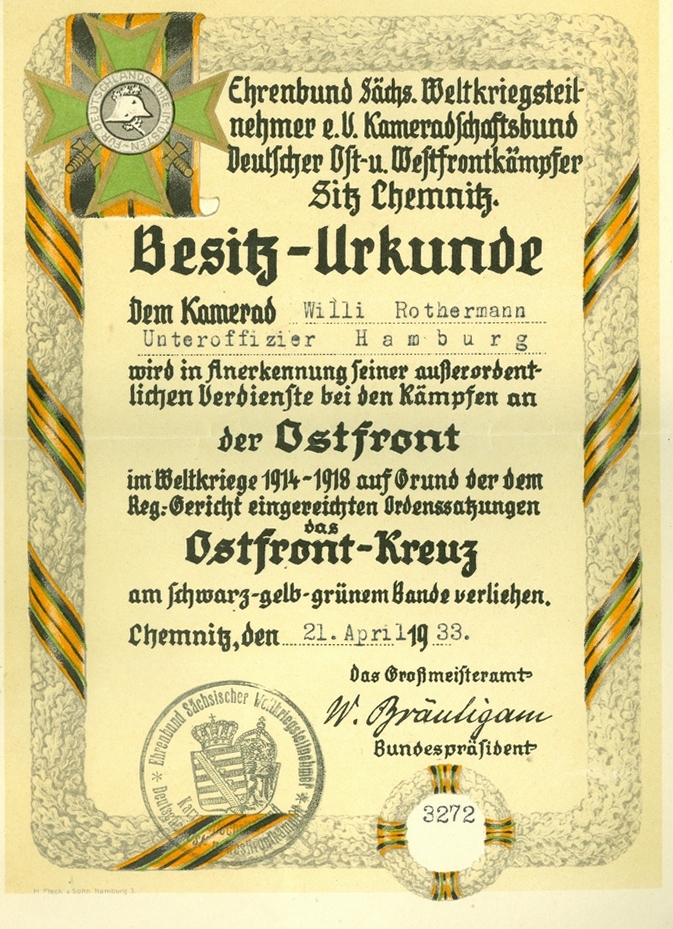 FÜR DEUTSCHLANDS EHRE IM OSTEN
Ehrenbund Sächs. Weltkriegsteil-
nehmer e.V. Kameradschaftsbund
Deutscher Ost- u. Westfrontkämpfer
Sitz Chemnitz.
Besitz-Urkunde
Dem Kamerad Willi Rothermann
Unteroffizier Hamburg
wird in Anerkennung seiner außerordent-
lichen Verdienste bei den Kämpfen an
der Ostfront
im Weltkriege 1914-1918 auf Grund der dem
Reg.-Gericht eingereichten Ordenssatzungen
das
Ostfront-Kreuz
am schwarz-gelb-grünem Bande verliehen.
Chemnitz, den 21. April 19 33.
Das Großmeisteramt
W. Bräutigam
Bundespräsident
Ehrenbund Sächsischer Weltkriegsteilnehmer
3272
H. Fleck & Sohn Hamburg 3.